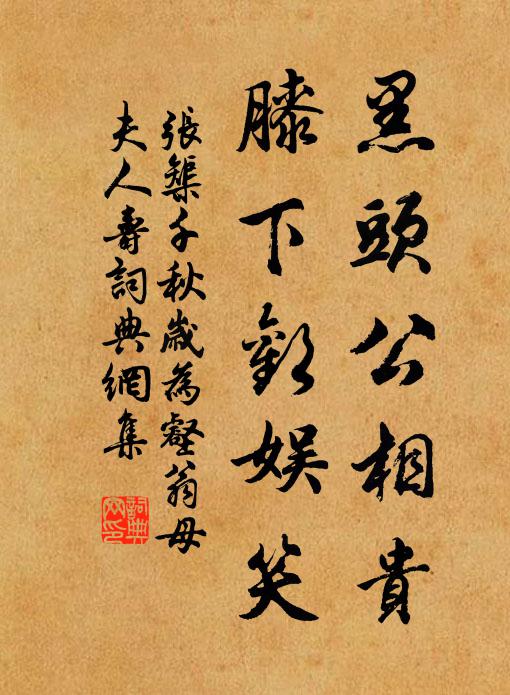 黑頭公相貴
膝下歡娛笑
張榘千秋歲為壑翁母
夫人壽詞典網集
詞典
网印